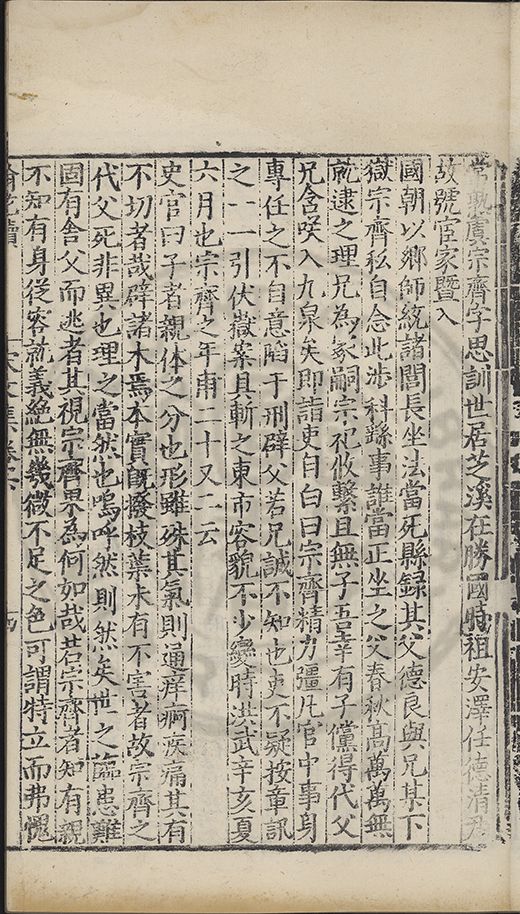 常熟虞宗齊字思訓世居芝溪在勝國時祖安澤任德清尹
故號宦家暨入
國朝以鄉師統諸閭長坐法當死縣録其父德良與兄某下
獄宗齊私自念此涉科繇事誰當正坐之父春秋高萬萬無
就逮之理兄為冢嗣宗祀攸繫且無子吾幸有子儻得代父
兄含咲入九泉矣即詣吏自白曰宗齊精力彊凡官中事身
專任之不自意陷于刑辟父若兄誠不知也吏不疑按章訊
之一一引伏獄案具斬之東市容貌不少變時洪武辛亥夏
六月也宗齊之年甫二十又二云
史官曰子者親体之分也形雖殊其氣則通痒痾疾痛其有
不切者哉辟諸木焉本實旣撥枝葉未有不害者故宗齊之
代父死非異也理之當然也嗚呼然則然矣世之臨患難
固有舍父而逃者其視宗齊果為何如哉若宗齊者知有親
不知有身從容就義絶無幾微不足之色可謂特立而弗愧